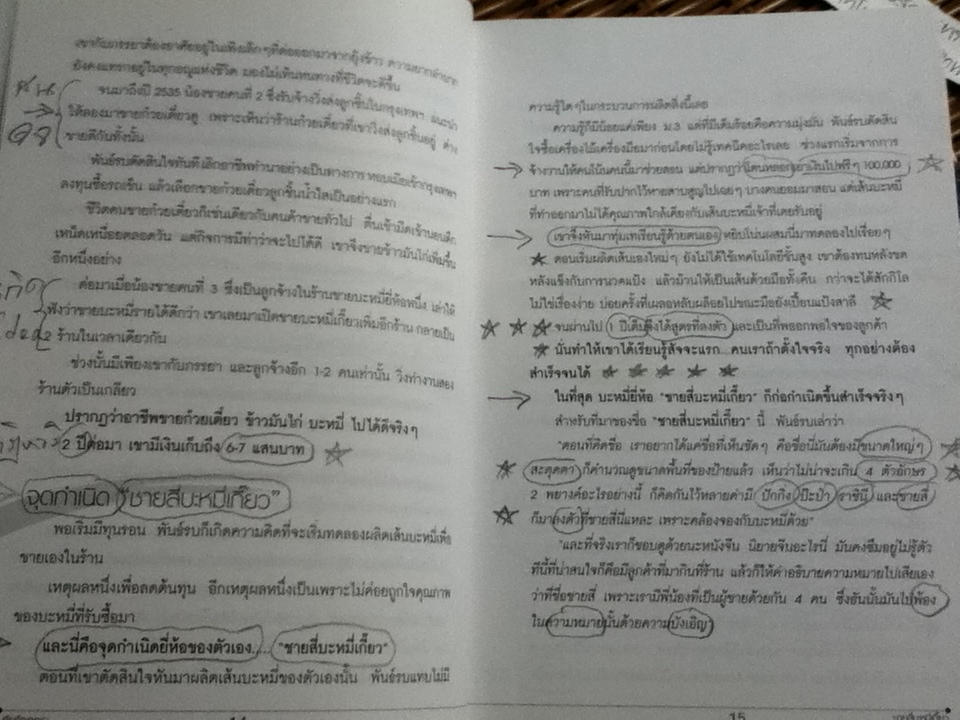 เขากับภรรยาต้องอาศัยอยู่ในเพิงเล็กๆที่ต่อออกมาจากยุ้งข้าว ความยากลำบาก
ยังคงแทรกอยู่ในทุกอณูแห่งชีวิต มองไม่เห็นหนทางที่ชีวิตจะดีขึ้น
จนมาถึงปี 2535 น้องชายคนที่ 2 ซึ่งรับจ้างวิ่งส่งลูกชิ้นในกรุงเทพฯ แนะนำ
ให้ลองมาขายก๋วยเตี๋ยวดู เพราะเห็นว่าร้านก๋วยเตี๋ยวที่เขาวิ่งส่งลูกชิ้นอยู่ ต่าง
ขายดีกันทั้งนั้น
พันธ์รบตัดสินใจทันที เลิกอาชีพทำนาอย่างเป็นทางการ หอบเมียเข้ากรุงเทพฯ
ลงทุนซื้อรถเข็น แล้วเลือกขายก๋วยเตี๋ยวลูกชิ้นน้ำใสเป็นอย่างแรก
ชีวิตคนขายก๋วยเตี๋ยวก็เช่นเดียวกับคนค้าขายทั่วไป ตื่นเช้ามืดเข้านอนดึก
เหน็ดเหนื่อยตลอดวัน แต่กิจการมีท่าว่าจะไปได้ดี เขาจึงขายข้าวมันไก่เพิ่มขึ้น
อีกหนึ่งอย่าง
ต่อมาเมื่อน้องชายคนที่ 3 ซึ่งเป็นลูกจ้างในร้านขายบะหมี่ยี่ห้อหนึ่ง เล่าให้
ฟังว่าขายบะหมี่รายได้ดีกว่า เขาเลยมาเปิดขายบะหมี่เกี๊ยวเพิ่มอีกร้าน กลายเป็น
2 ร้านในเวลาเดียวกัน
ช่วงนั้นมีเพียงเขากับภรรยา และลูกจ้างอีก 1-2 คนเท่านั้น วิ่งทำงานสอง
ร้านตัวเป็นเกลียว
ปรากฏว่าอาชีพขายก๋วยเตี๋ยว ข้าวมันไก่ บะหมี่ ไปได้ดีจริงๆ
2 ปีต่อมา เขามีเงินเก็บถึง 6-7 แสนบาท
จุดกำเนิด "ชายสี่บะหมี่เกี๊ยว"
พอเริ่มมีทุนรอน พันธ์รบก็เกิดความคิดที่จะเริ่มทดลองผลิตเส้นบะหมี่เพื่อ
ขายเองในร้าน
เหตุผลหนึ่งเพื่อลดต้นทุน อีกเหตุผลหนึ่งเป็นเพราะไม่ค่อยถูกใจคุณภาพ
ของบะหมี่ที่รับซื้อมา
และนี่คือจุดกำเนิดยี่ห้อของตัวเอง.... "ชายสี่บะหมี่เกี๊ยว"
ตอนที่เขาตัดสินใจหันมาผลิตเส้นบะหมี่ของตัวเองนั้น พันธ์รบแทบไม่มี
ความรู้ใดๆในกระบวนการผลิตสิ่งนี้เลย
ความรู้ก็มีน้อยแค่เพียง ม.3 แต่ที่มีเต็มร้อยคือความมุ่งมั่น พันธ์รบตัดสิน
ใจซื้อเครื่องไม้เครื่องมือมาก่อนโดยไม่รู้เทคนิคอะไรเลย ช่วงแรกเริ่มจากการ
จ้างวานให้คนโน้นคนนี้มาช่วยสอน แต่ปรากฏว่าโดนหลอกเอาเงินไปฟรีๆ 100,000
บาท เพราะคนที่รับปากไว้หายสาบสูญไปเฉยๆ บางคนยอมมาสอน แต่เส้นบะหมี่
ที่ทำออกมาไม่ได้คุณภาพใกล้เคียงกับเส้นบะหมี่เจ้าที่เคยรับอยู่
เขาจึงหันมาทุ่มเทเรียนรู้ด้วยตนเอง หยิบโน่นผสมนี่มาทดลองไปเรื่อยๆ
ตอนเริ่มผลิตเส้นเองใหม่ๆ ยังไม่ได้ใช้เทคโนโลยีชั้นสูง เขาต้องทนหลังขด
หลังแข็งกับการนวดแป้ง แล้วม้วนให้เป็นเส้นด้วยมือทั้งคืน กว่าจะได้สักกิโล
ไม่ใช่เรื่องง่าย บ่อยครั้งที่เผลอหลับผล็อยไปขณะมือยังเปื้อนแป้งสาลี
จนผ่านไป 1 ปีเต็มจึงได้สูตรที่ลงตัว และเป็นที่พออกพอใจของลูกค้า
นั่นทำให้เขาได้เรียนรู้สัจจะแรก...คนเราถ้าตั้งใจจริง ทุกอย่างต้อง
สำเร็จจนได้
ในที่สุด บะหมี่ยี่ห้อ "ชายสี่บะหมี่เกี๊ยว" ก็ก่อกำเนิดขึ้นสำเร็จจริงๆ
สำหรับที่มาของชื่อ "ชายสี่บะหมี่เกี๊ยว" นี้ พันธ์รบเล่าว่า
"ตอนที่คิดชื่อ เราอยากได้แค่ชื่อที่เห็นชัดๆ คือชื่อนี่มันต้องมีขนาดใหญ่ๆ
สะดุดตา ก็คำนวณดูขนาดพื้นที่ของป้ายแล้ว เห็นว่าไม่น่าจะเกิน 4 ตัวอักษร
2 พยางค์อะไรอย่างนี้ ก็คิดกันไว้หลายคำมี ปักกิ่ง ป๊ะป๋า ราชินี และชายสี่
ก็มาลงตัวที่ชายสี่นี่แหละ เพราะคล้องจองกับบะหมี่ด้วย"
"และที่จริงเราก็ชอบดูด้วยนะหนังจีน นิยายจีนอะไรนี่ มันคงซึมอยู่ไม่รู้ตัว
ทีนี้ที่น่าสนใจก็คือมีลูกค้าที่มากินที่ร้าน แล้วก็ให้คำอธิบายความหมายไปเสียเอง
ว่าที่ชื่อชายสี่ เพราะเรามีพี่น้องที่เป็นผู้ชายด้วยกัน 4 คน ซึ่งอันนั้นมันไปพ้อง
ในความหมายนั้นด้วยความบังเอิญ"
15